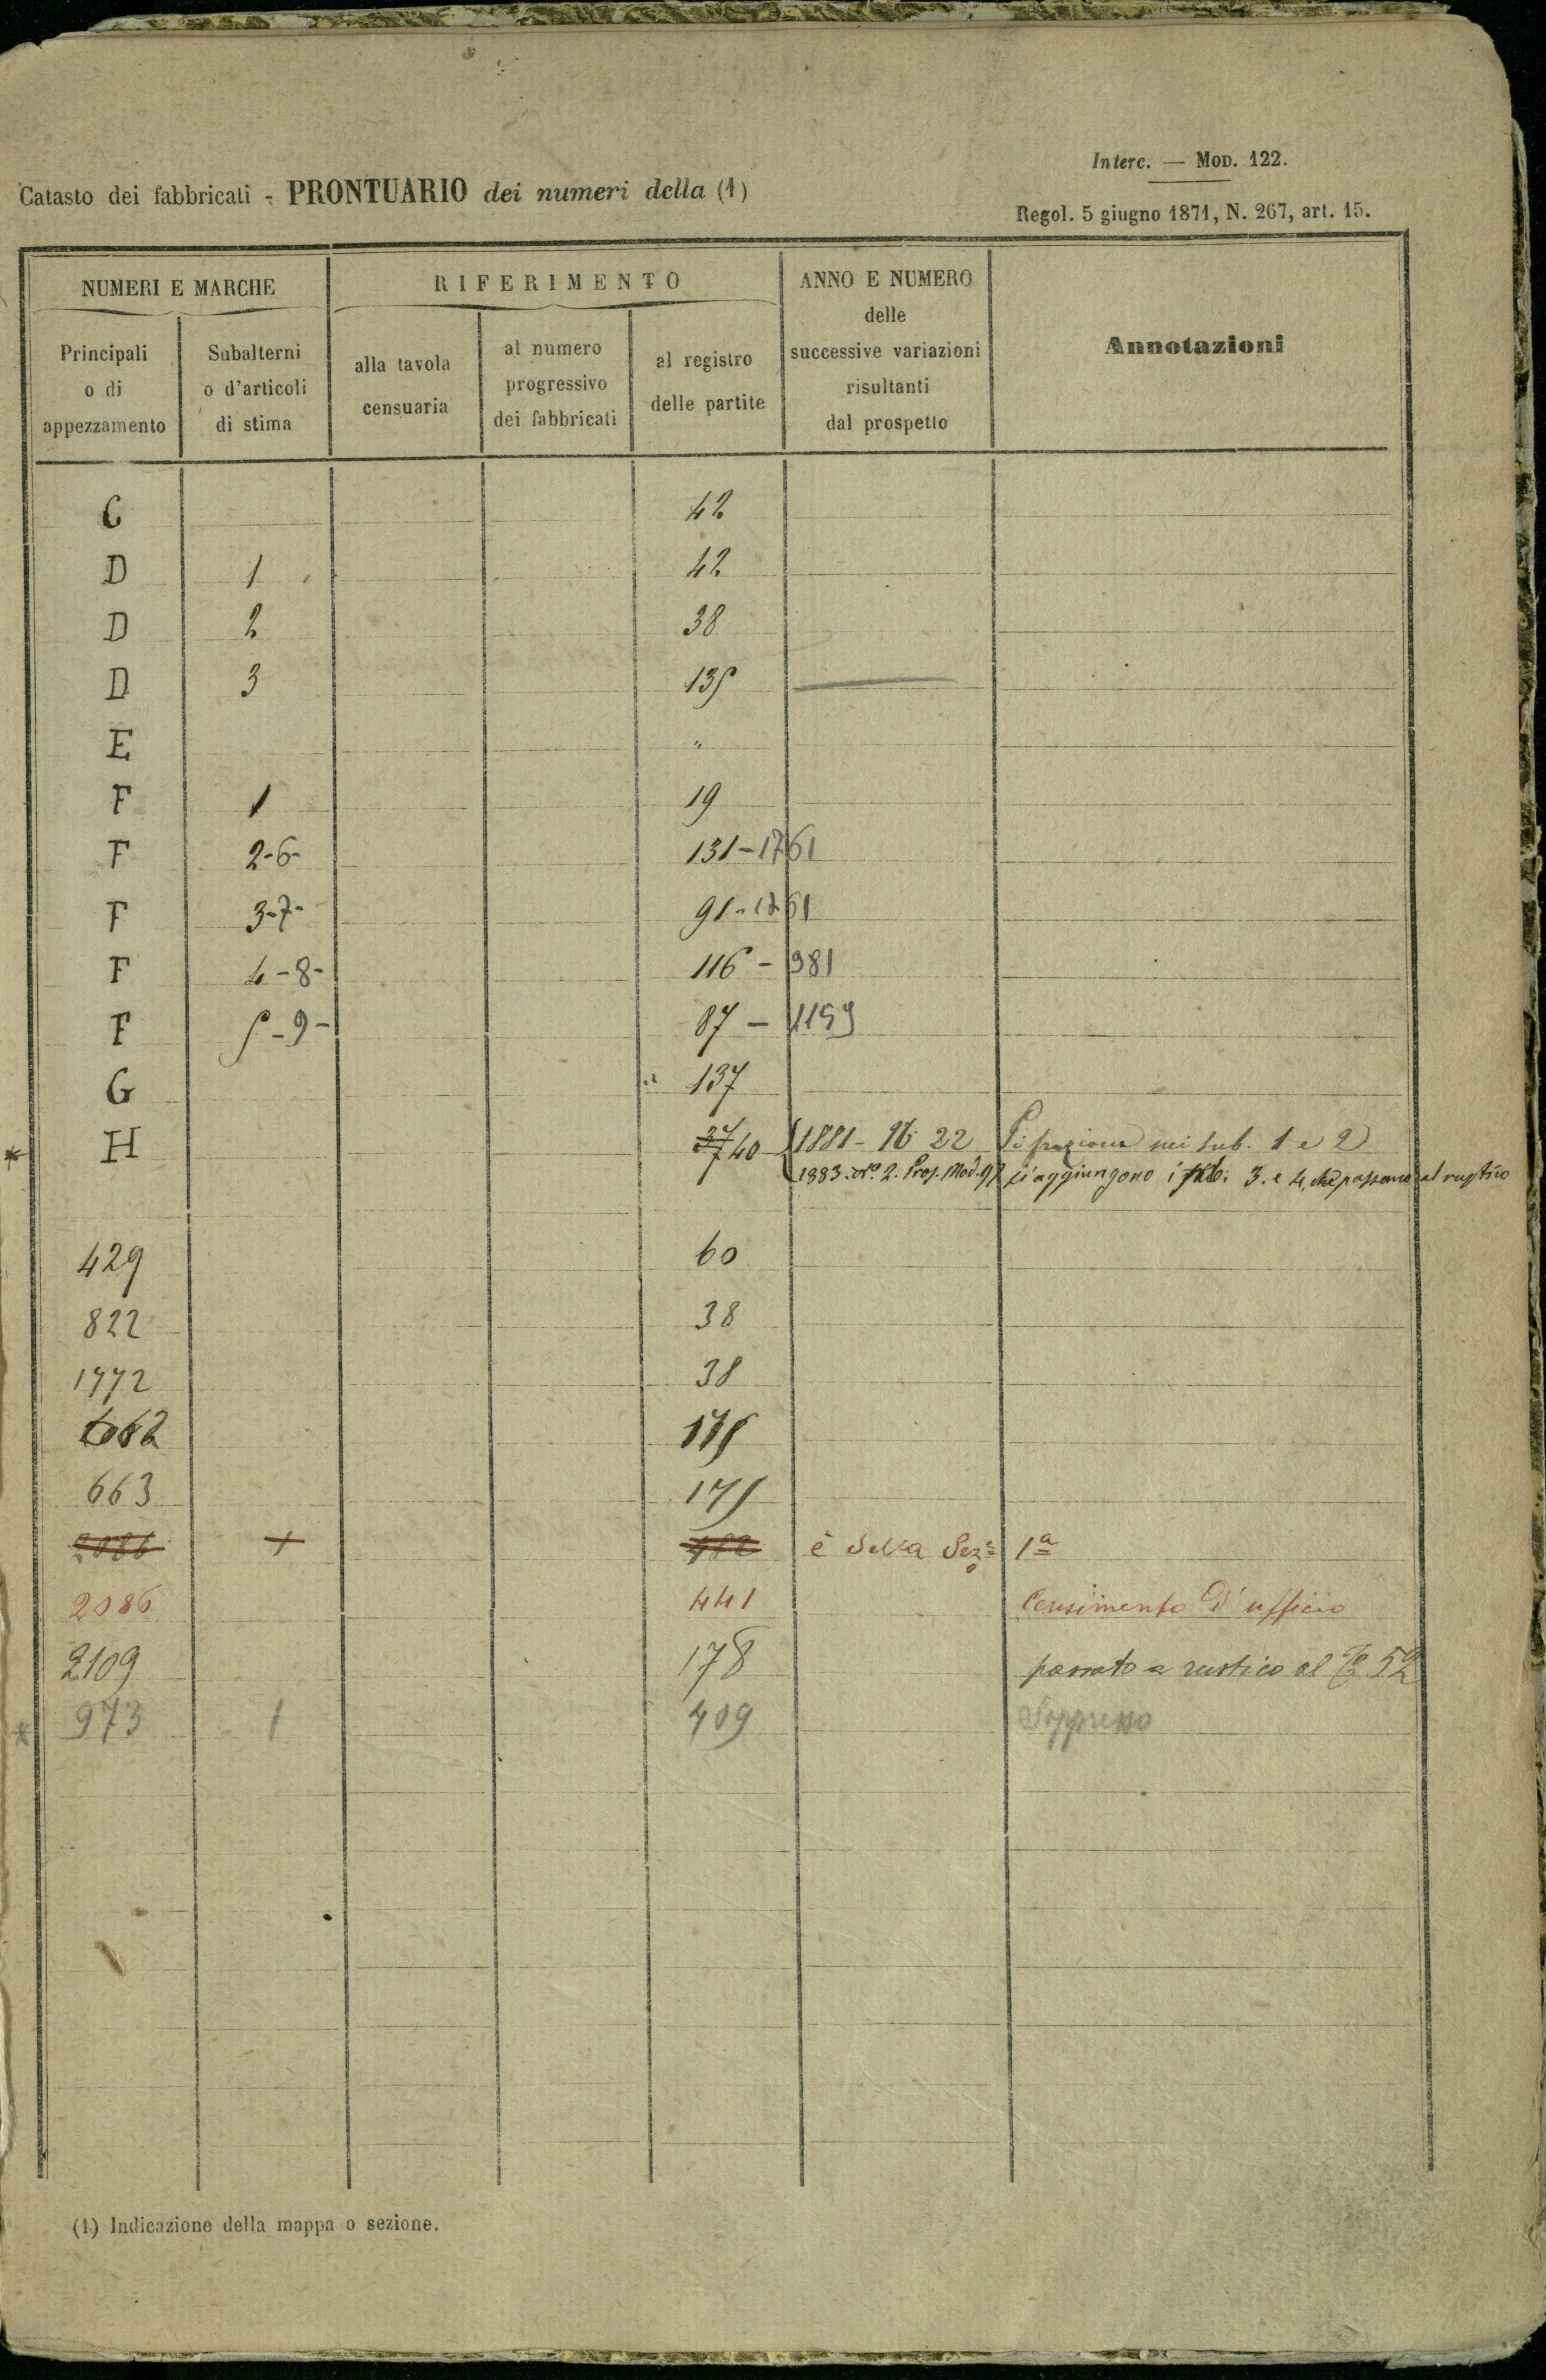 Interc. — MOD. 122.
Catasto dei fabbricati - PRONTUARIO dei numeri della (1)
Regol. 5 giugno 1871, N. 267, art. 15.
NUMERI E MARCHE
RIFERIMENTO
ANNO E NUMERO
delle
successive variazioni
risultanti
dal prospetto
Annotazioni
Principali
o di
appezzamento
Subalterni
o d'articoli
di stima
alla tavola
censuaria
al numero
progressivo
dei fabbricati
al registro
delle partite
C 42
D 1 42
D 2 38
D 3 135
E "
F 1 19
F 2-6- 131-1761
F 3-7- 91-1761
F 4-8- 116-981
F 5-9- 87-1159
G 137
* H 37 40 1881 - 22 nei sub. 1 e 2
1883. N.º 2. Prosp. Mod. 97 si aggiungono i sub. 3. e 4, che passano al rustico
429 60
822 38
1772 38
662 175
663 175
2086 1 è della Sez.e 1ª
2086 441 Censimento d'ufficio
2109 178 passato a rustico al 52
* 973 1 409 Soppresso
(1) Indicazione della mappa o sezione.